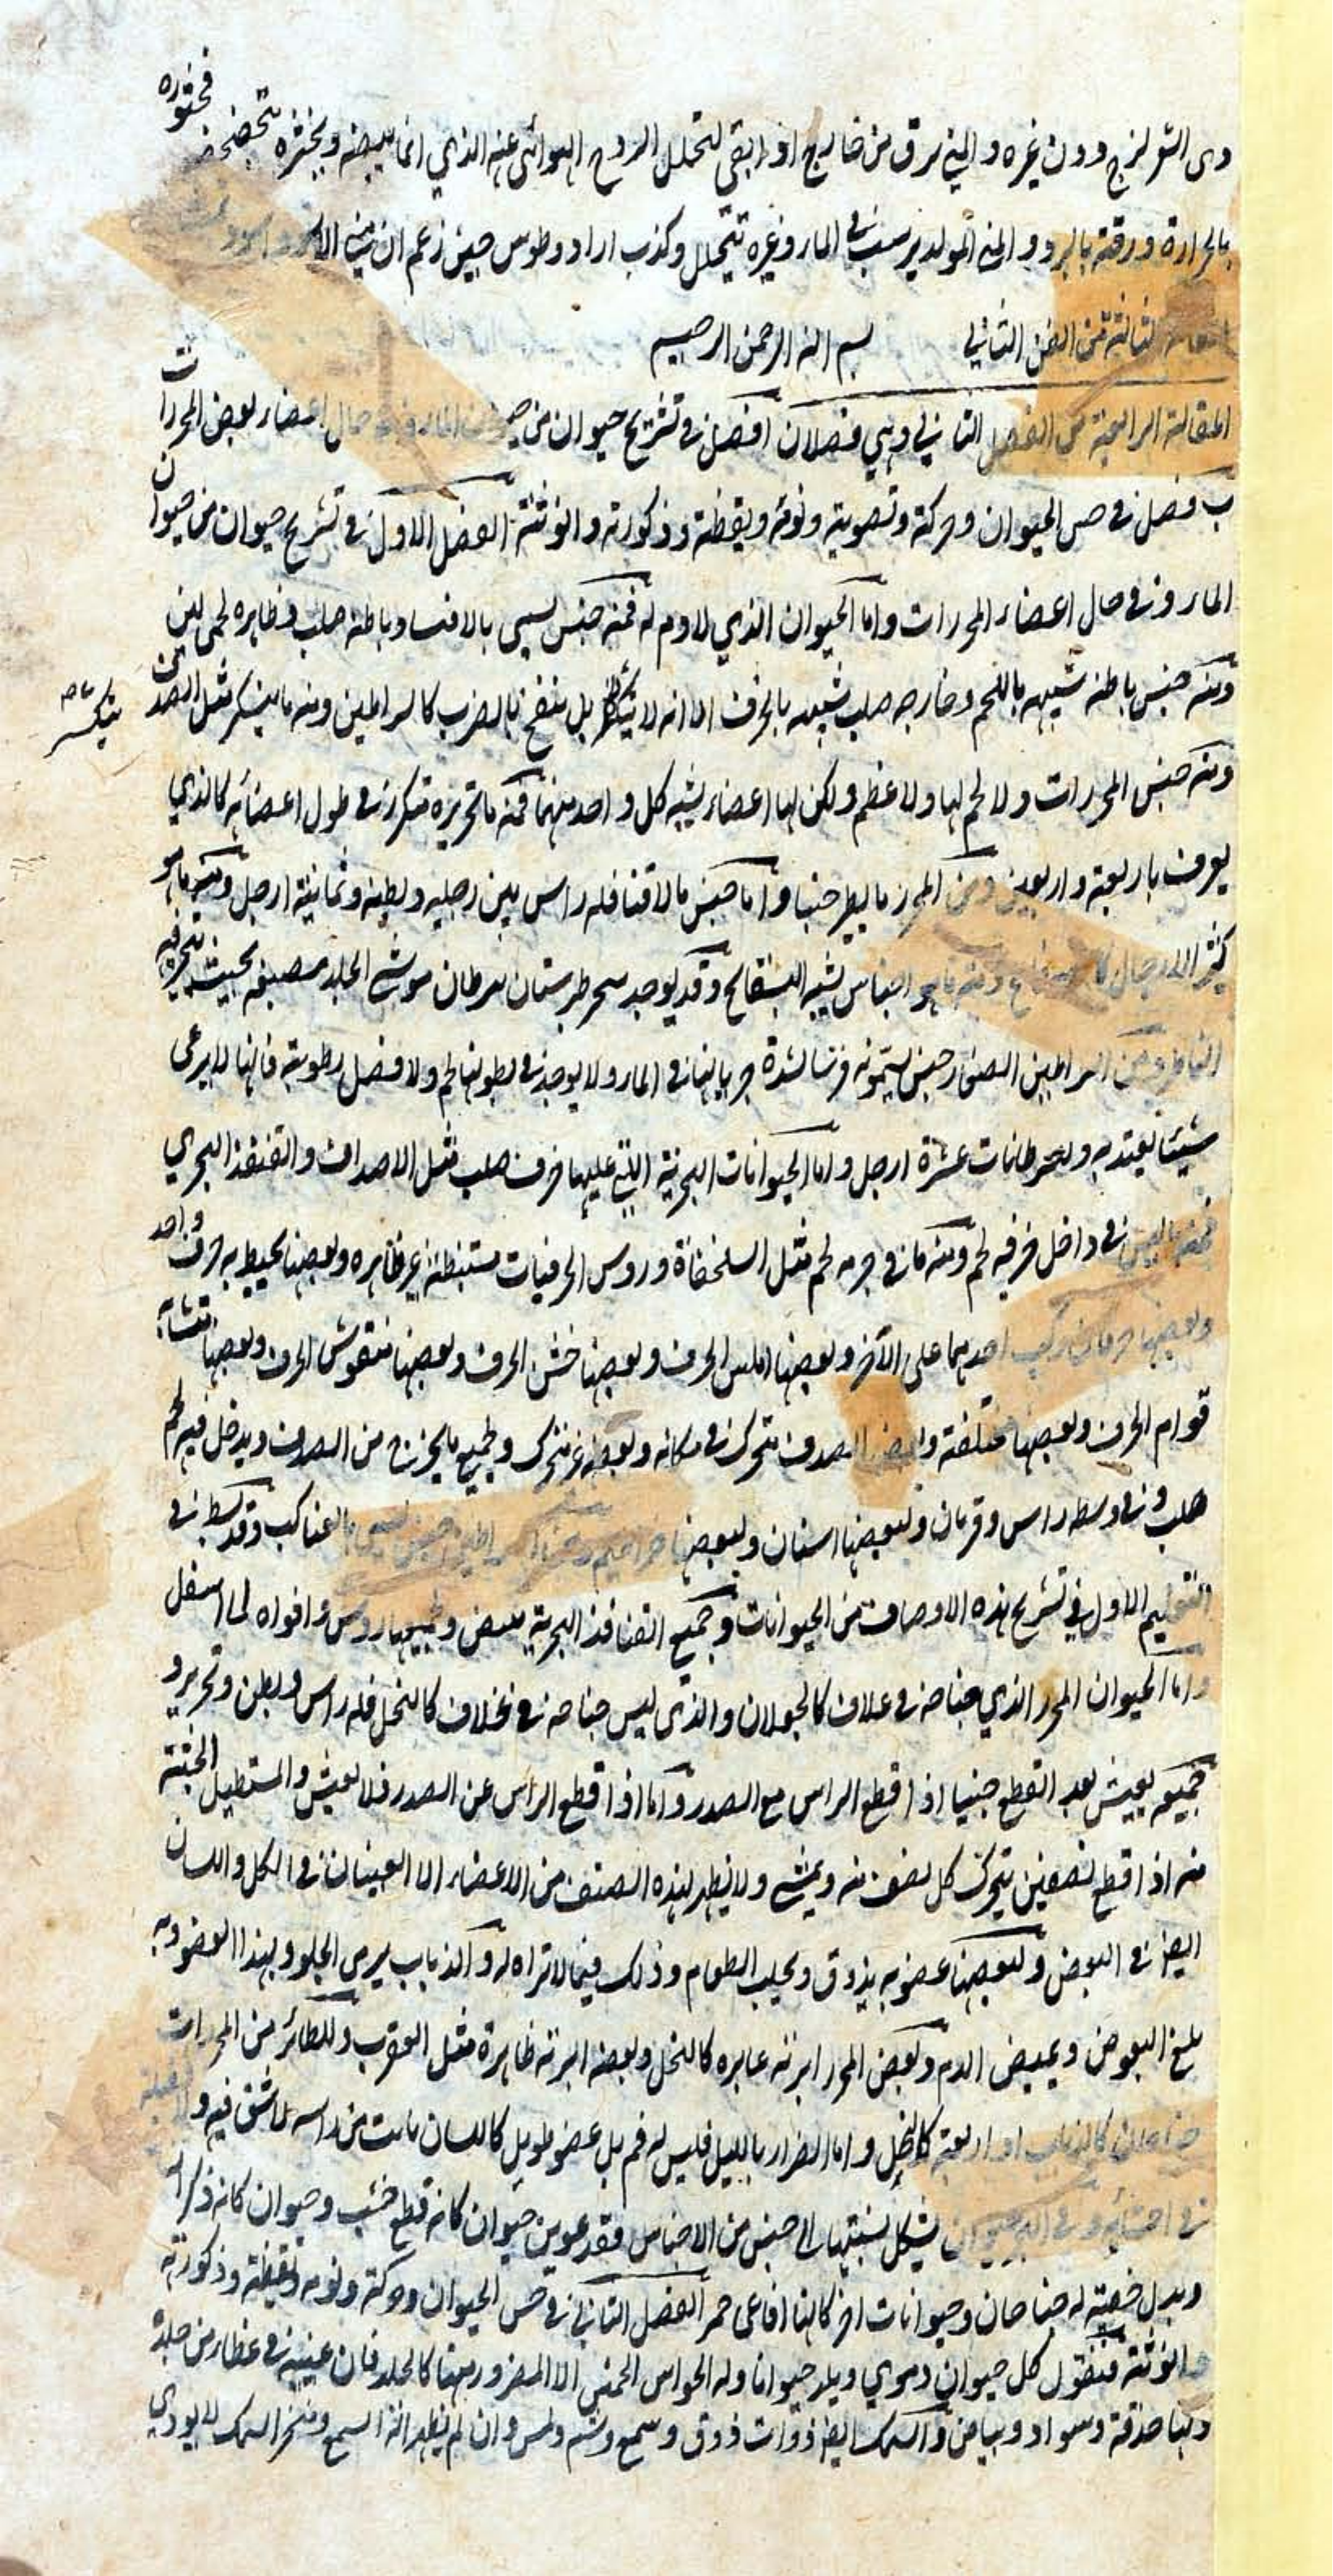 فخثوره
دى الشعر لزج دون غيره والمني يرق من خارج اذا بقي لتحلل الروح الهوائى عنه الذي انما يبيضه ويخثره تخضخض
بالحرارة ورقته بالبرد والمني المولد يرسب في الماء وغيره يتحلل وكذب ارادوطوس حين زعم ان مني الاسود اسود
الثالثة من الفن الثاني بسم الله الرحمن الرحيم
المقالة الرابعة من الفصل الثاني وهي فصلان ا فصل في تشريح حيوان من الماء وفي حال اعضاء بعض المحززات
ب فصل في حس الحيوان وحركته وتصويته ونومه ويقظته وذكورته وانوثته الفصل الاول في تشريح حيوان من حيوان
الماء وفي حال اعضاء المحززات واما الحيوان الذي لا دم له فمنه جنس يسمى مالاقيا وباطنه صلب وظاهره لحمى لين
ومنه جنس باطنه شبيه باللحم وخارجه صلب شبيه بالخزف الا انه لا ينكسر بل ينفخ بالضرب كالسراطين ومنه ما ينكسر مثل الصدف
ينكسر صح
ومنه جنس المحززات ولا لحم لها ولا عظم ولكن لها اعضاء يشبه كل واحد منهما فمنه ما تحزيزه متكرر في طول اعضائه كالذي
يعرف باربعة واربعين ومن المحرز ما يطير جنبا واما جنس مالاقيا فله راس بين رجليه وبطنه وثمانية ارجل ومنه ما هو
كثير الارجل ومنه ما هو اجناس يشبه البسفايج وقد يوجد ببحر طبرستان سرطان موشى الجلد مصبغه بحيث يتحير فيه
الناظر ومن السراطين الصغار جنس يسمونه فرسا لشدة جريانها في الماء ولا يوجد في بطونها لحم ولا فضل رطوبة فانها لا يرعى
شيئا يعتد به وللسرطانات عشرة ارجل واما الحيوانات البحرية التي عليها خزف صلب مثل الاصداف والقنفذ البحري
فمنه ما ليس في داخل خزفه لحم ومنه ما في جرمه لحم مثل السلحفاة وروس الخزفيات مستبطنة غير ظاهره وبعضها يحيط به خزف واحد
وبعضها خزفان يركب احدهما على الآخر وبعضها املس الخزف وبعضها خشن الخزف وبعضها منقوش الخزف وبعضها متشابه
قوام الخزف وبعضها مختلفة وبعض الصدف متحرك في مكانه وبعضه غير متحرك وجميع ما يخرج من الصدف ويدخل فيه لحم
صلب وفي وسطه راس وقرنان ولبعضها اسنان ولبعضها خراطيم ومن السراطين جنس يسمى بالعناكب وقد بسط في
التعليم الاول في تشريح هذه الاوصاف من الحيوانات وجميع القنافذ البحرية تبيض وجميعها روس وافواه الى اسفل
واما الحيوان المحزز الذي جناحه في غلاف كالجعلان والذي ليس جناحه في غلاف كالنحل فله راس وبطن وتحزيز و
جميعه يعيش بعد القطع حينا اذا قطع الراس مع الصدر واما اذا قطع الراس عن الصدر فلا يعيش والمستطيل الجثة
منه اذا قطع نصفين يتحرك كل نصف منه ويمشي ولا يظهر لهذه الصنف من الاعضاء الا العينان في الكل واللسان
ايضا في البعض ولبعضها عضو به يذوق ويجلب الطعام وذلك فيما لا ابرة له والذباب يرمى الحلو وبهذا العضو وبه
يلدغ البعوض ويمص الدم وبعض المحزز ابرته غايره كالنحل وبعضه ابرته ظاهرة مثل العقرب وللطائر من المحززات
جناحان كالذباب او اربعة كالنحل واما الصرار بالليل فليس له فم بل عضو طويل كاللسان نابت من راسه لا شق فيه و
في احشائه وفي البحر حيوان يشكل نسبتها الى جنس من الاجناس فقد عوين حيوان كانه قطع خشب وحيوان كانه ذكر
وبدل خصيته له جناحان وحيوانات اخر كانها افاعى حمر الفصل الثاني في حس الحيوان وحركته ونومه ويقظته وذكورته
وانوثته فنقول كل حيوان دموي ويلد حيوانا وله الحواس الخمس الا المضرور منها كالخلد فان عينيه في غطاء من جلدة
ولها حدقة وسواد وبياض والسمك ايضا ذوات ذوق وسمع وشم ولمس وان لم يظهر آلة السمع ومنخر السمك لا يودي